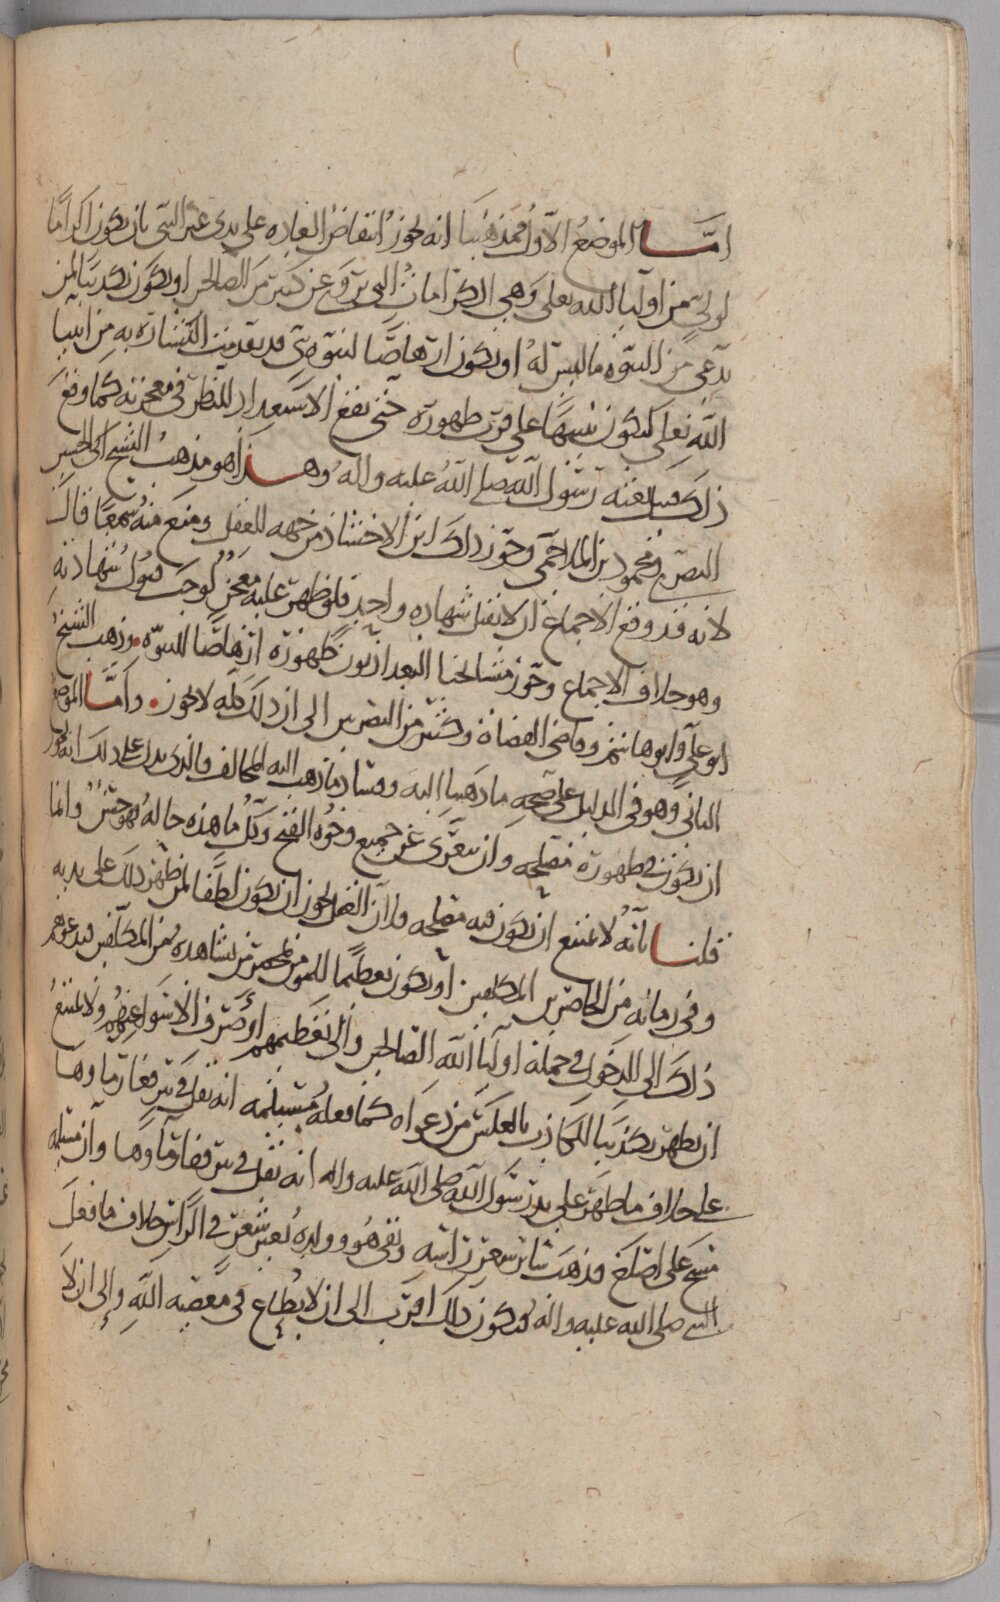 امّا الموضع الاوّل فمذهبنا انه يجوز انتقاض العاده على يدي غير النبي بان يكون اكرامًا
لوليّ من اوليا الله تعلى وهي الكرامات التي تروى عن كثير من الصالحين او يكون تكذيبا لمن
يدعي من النبوه ما ليس له او يكون ارهاصًا لنبوه نبي قد تقدمت البشاره به من انبيا
الله تعلى ليكون تنبيهًا على قرب ظهوره حتى يقع الاستعداد للنظر في معجزته كما وقع
ذلك قبل بعثه رسول الله صلى الله عليه واله وهذا هو مذهب الشيخ ابي الحسين
البصري ومحمود بن الملاحمي وجوّز ذلك ابن الاخشاذ من جهه العقل ومنع منه سمعًا قال
لانه قد وقع الاجماع ان لا تقبل شهاده واحد فلو ظهر عليه معجز لوجب قبول شهادته
وهو خلاف الاجماع وجوّز مشايخنا البغداذيون ظهوره ارهاصًا للنبوّه وذهب الشيخ
ابو علي وابو هاشم وقاضي القضاة وكثير من البصريين الى ان ذلك كله لا يجوز وامّا الموضع
الثاني وهو في الدليل على صحه ما ذهبنا اليه وفساد ما ذهب اليه المخالف فالذي يدل على ذلك انه يجوز
ان يكون في ظهوره مصلحه وان يتعرّى عن جميع وجوه القبح وكل ما هذه حاله فهو حسن وانما
قلنا بانه لا يمتنع ان يكون فيه مصلحه ولان العقل يجوز ان يكون لطفًا لمن ظهر ذلك على يديه
وفي زمانه من الحاضرين المكلفين او يكون تعظيما للمؤمن لمن يشاهده من المكلفين فيدعوهم
ذلك الى الدخول في جملة اوليا الله الصالحين والى تعظيمهم او صرف الاسواء عنهم ولا يمتنع
ان يظهر تكذيبا للكاذب بالعكس من دعواه كما فعله مسيلمه انه تفل في بير فغار ماوها
على خلاف ما ظهر على يد رسول الله صلى الله عليه واله انه تفل في بير ففار ماوها وان مسيلمه
مسح على اصلع فذهب ساير شعر راسه وبقي هو وولده بغير شعر في الراس خلاف ما فعل
النبي صلى الله عليه واله ليكون ذلك اقرب الى ان لا يطاع في معصيه الله والى ان لا